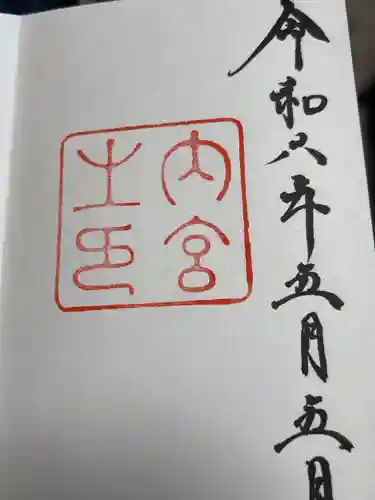 令和六年五月五日
内宮
之印